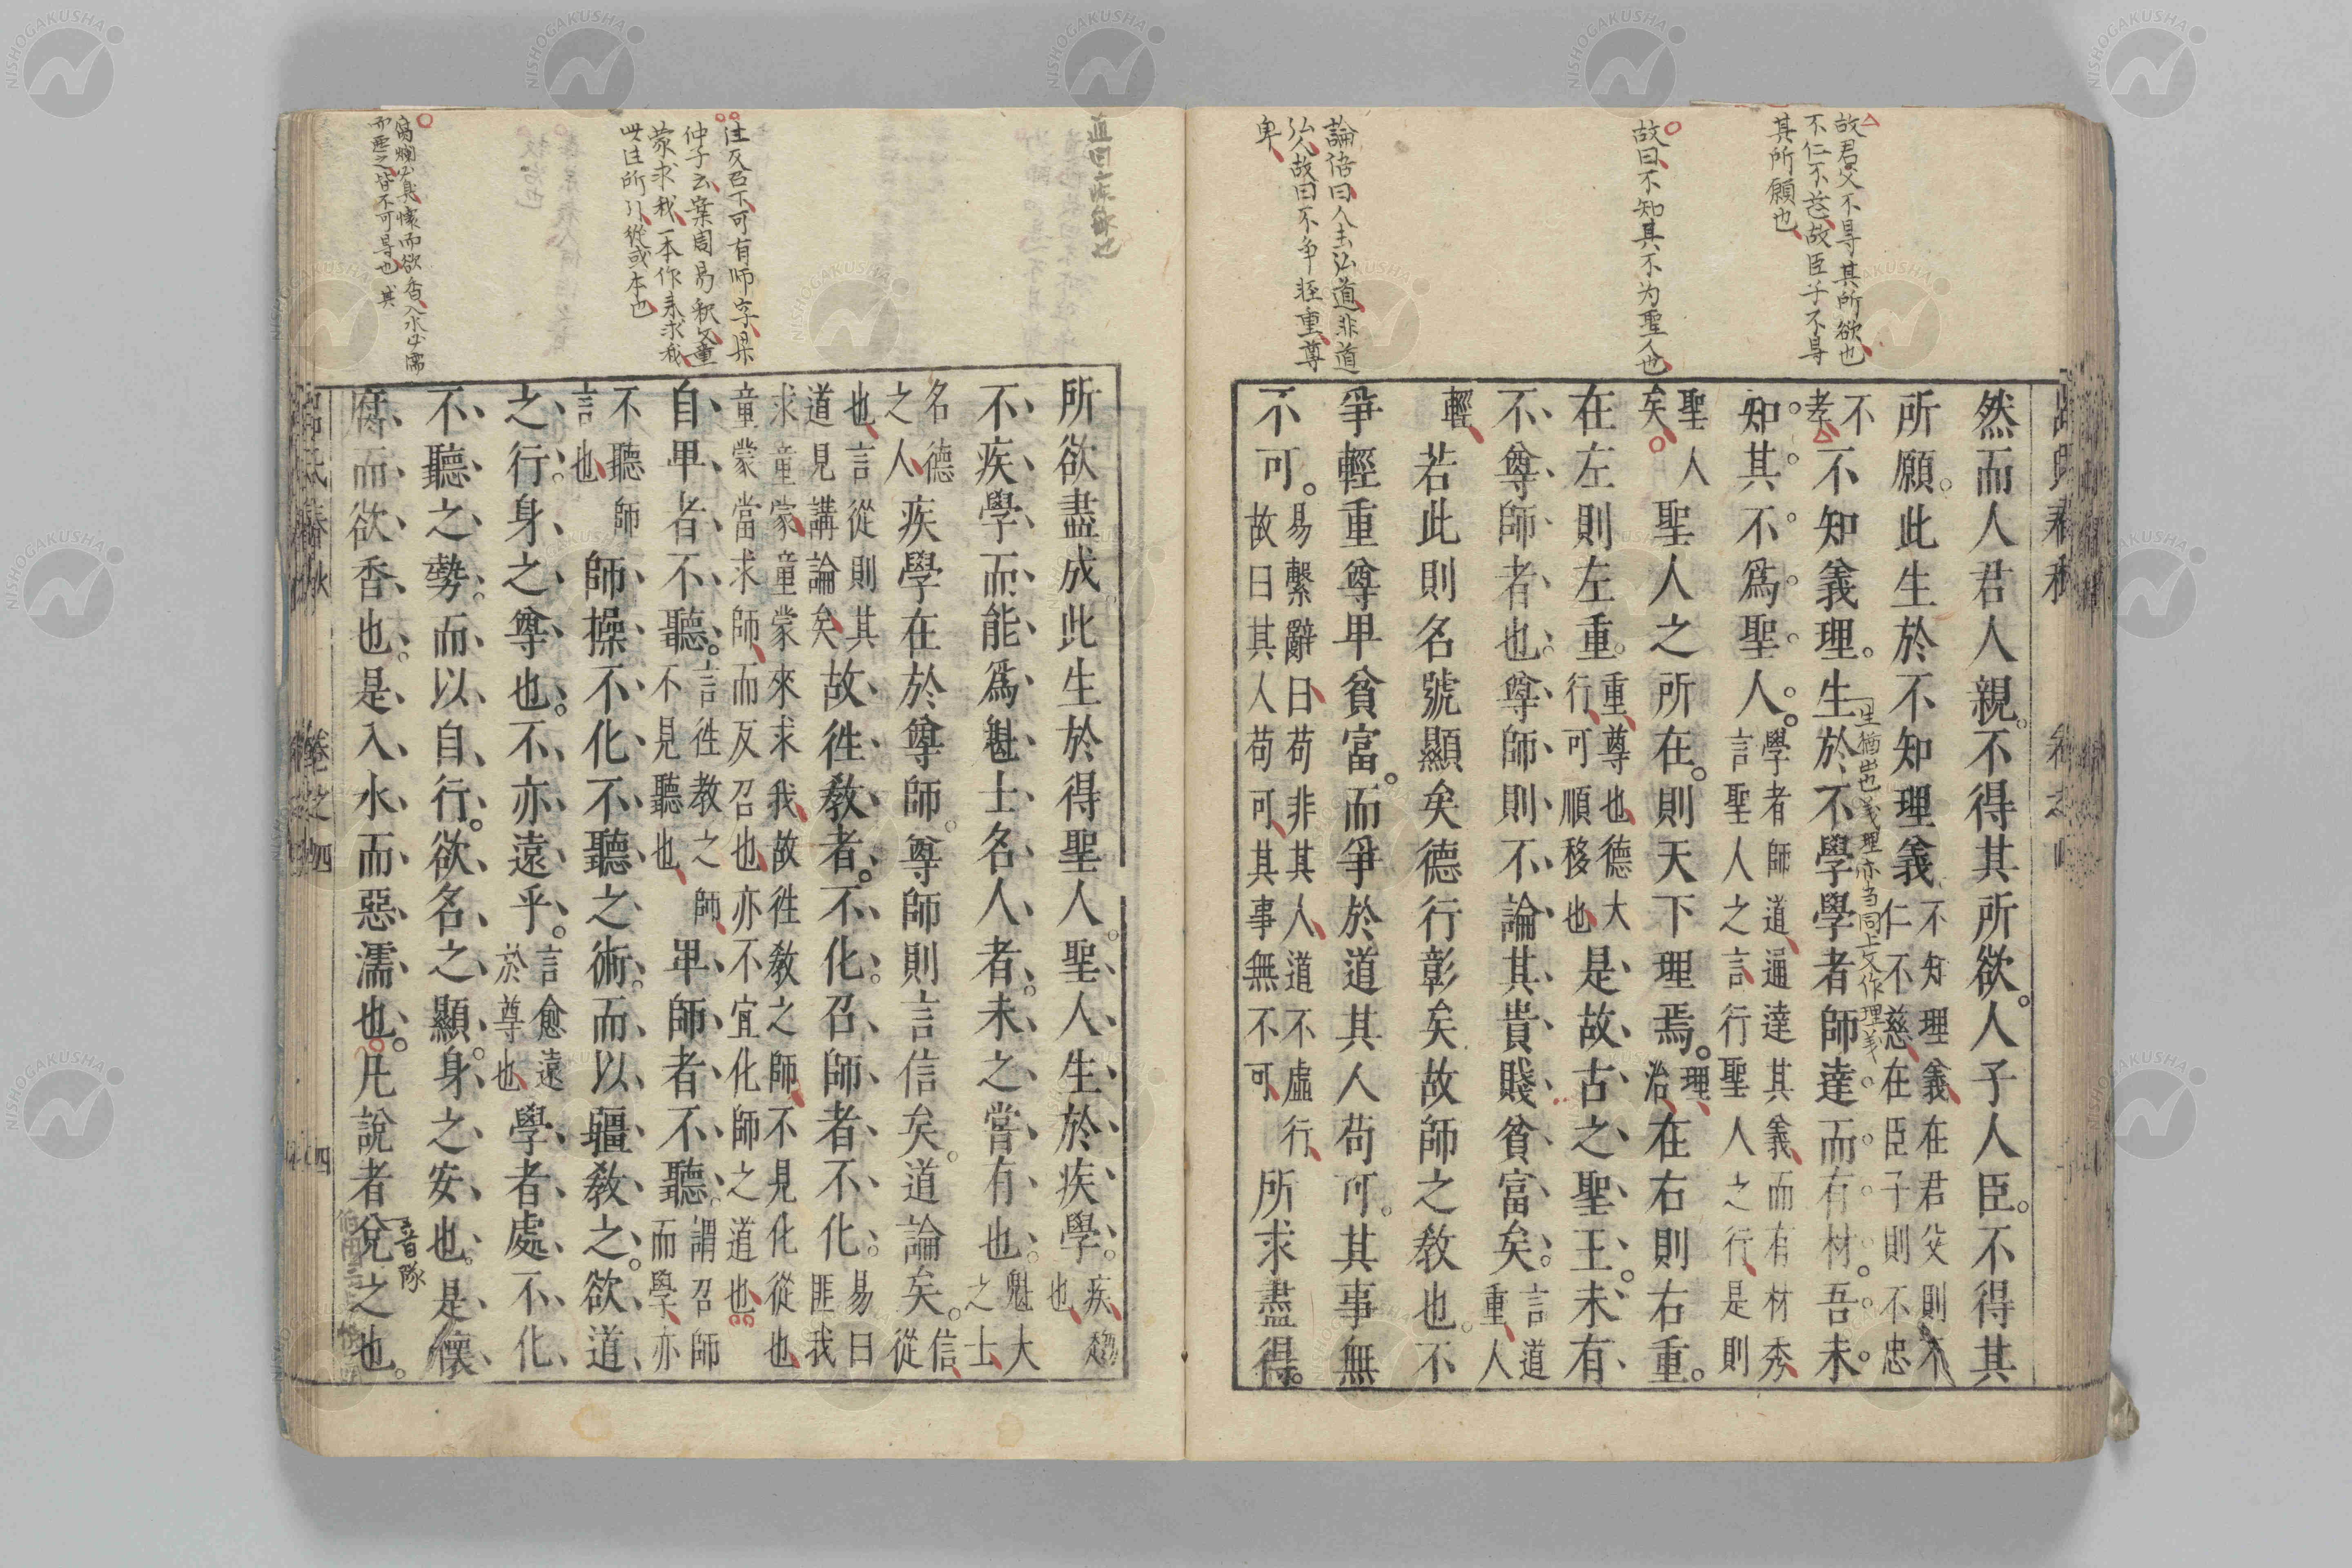 故君父不得其所欲也
不仁不慈故臣子不得
其所願也
故曰不知其不为聖人也
論倍曰人去弘道非道
弘人故曰不争軽重尊
卑
然而人君人親不得其所欲人子人臣不得其
所願此生於不知理義不知理義在君父則不
仁不慈在臣子則不忠
不
孝不知義理生於不學學者師達而有材吾未
生猶出也義理亦当同上文作理義
知其不爲聖人學者師道通達其義而有材秀
言聖人之言行聖人之行是則
聖人
矣聖人之所在則天下理焉理
治在右則右重
在左則左重重尊也德大
行可順移也是故古之聖王未有
不尊師者也尊師則不論其貴賤貧富矣言道
重人
輕若此則名號顯矣德行彰矣故師之教也不
爭輕重尊卑貧富而爭於道其人苟可其事無
不可易繫辭曰苟非其人道不虛行
故曰其人苟可其事無不可所求盡得
注反召下可有师字具
仲子云案周易釈文童
蒙求我一本作来求我
此注所引従或本也
腐爛公臭懐而欲香入水必濡
而悪之皆不可得也
所欲盡成此生於得聖人聖人生於疾學疾趨
也
不疾學而能爲魁士名人者未之嘗有也魁大
之士
名德
之人疾學在於尊師尊師則言信矣道論矣信
從
也言從則其
道見講論矣故往教者不化召師者不化易曰
匪我
求童蒙童蒙來求我故往教之師不見化從也
童蒙當求師而反召也亦不宜化師之道也
自卑者不聽言往教之師
不見聽也卑師者不聽謂召師
而學亦
不聽師
言也師操不化不聽之術而以彊教之欲道
之行身之尊也不亦遠乎言愈遠
於尊也學者處不化
不聽之勢而以自行欲名之顯身之安也是懷
腐而欲香也是入水而惡濡也凡說者兌之也
音隊
呂氏春秋
卷之四
四
NISHOGAKUSHA